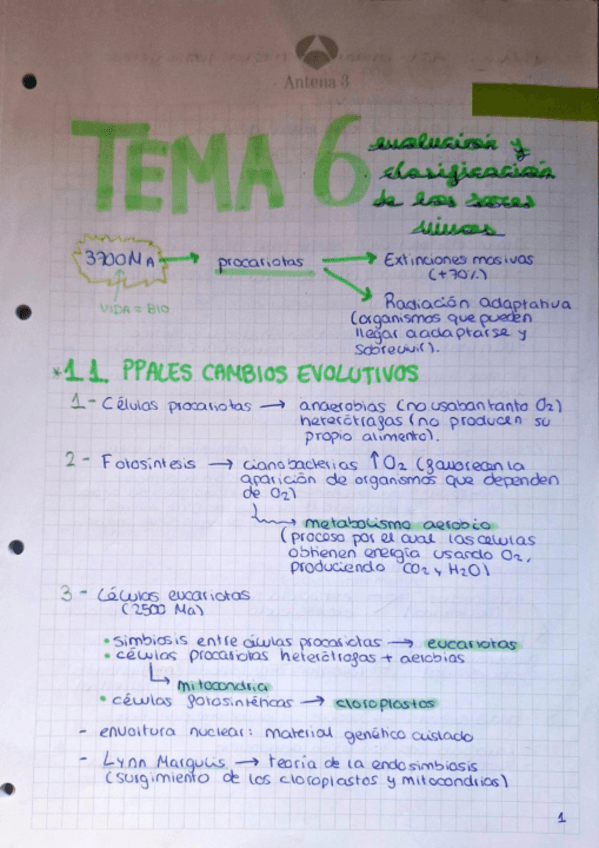 Antena 3
TEMA 6
evolución y
clasificación
de los seres
vivos
3700 MA → procariotas → Extinciones masivas
(+70%)
VIDA = BIO
Radiación adaptativa
(organismos que pueden
llegar a adaptarse y
sobrevivir).
*1.1. PPALES CAMBIOS EVOLUTIVOS
1- Células procariotas → anaerobias (no usaban tanto O2)
heterótrofas (no producen su
propio alimento).
2- Fotosíntesis → cianobacterias ↑O2 (favorecen la
aparición de organismos que dependen
de O2)
metabolismo aerobio
(proceso por el cual las células
obtienen energía usando O2,
produciendo CO2 y H2O)
3- Células eucariotas
(2500 Ma)
• simbiosis entre células procariotas → eucariotas
• células procariotas heterótrofas + aerobias
mitocondria
• células fotosintéticas → cloroplastos
- envoltura nuclear: material genético aislado
- Lynn Margulis → teoría de la endosimbiosis
(surgimiento de los cloroplastos y mitocondrias)
1